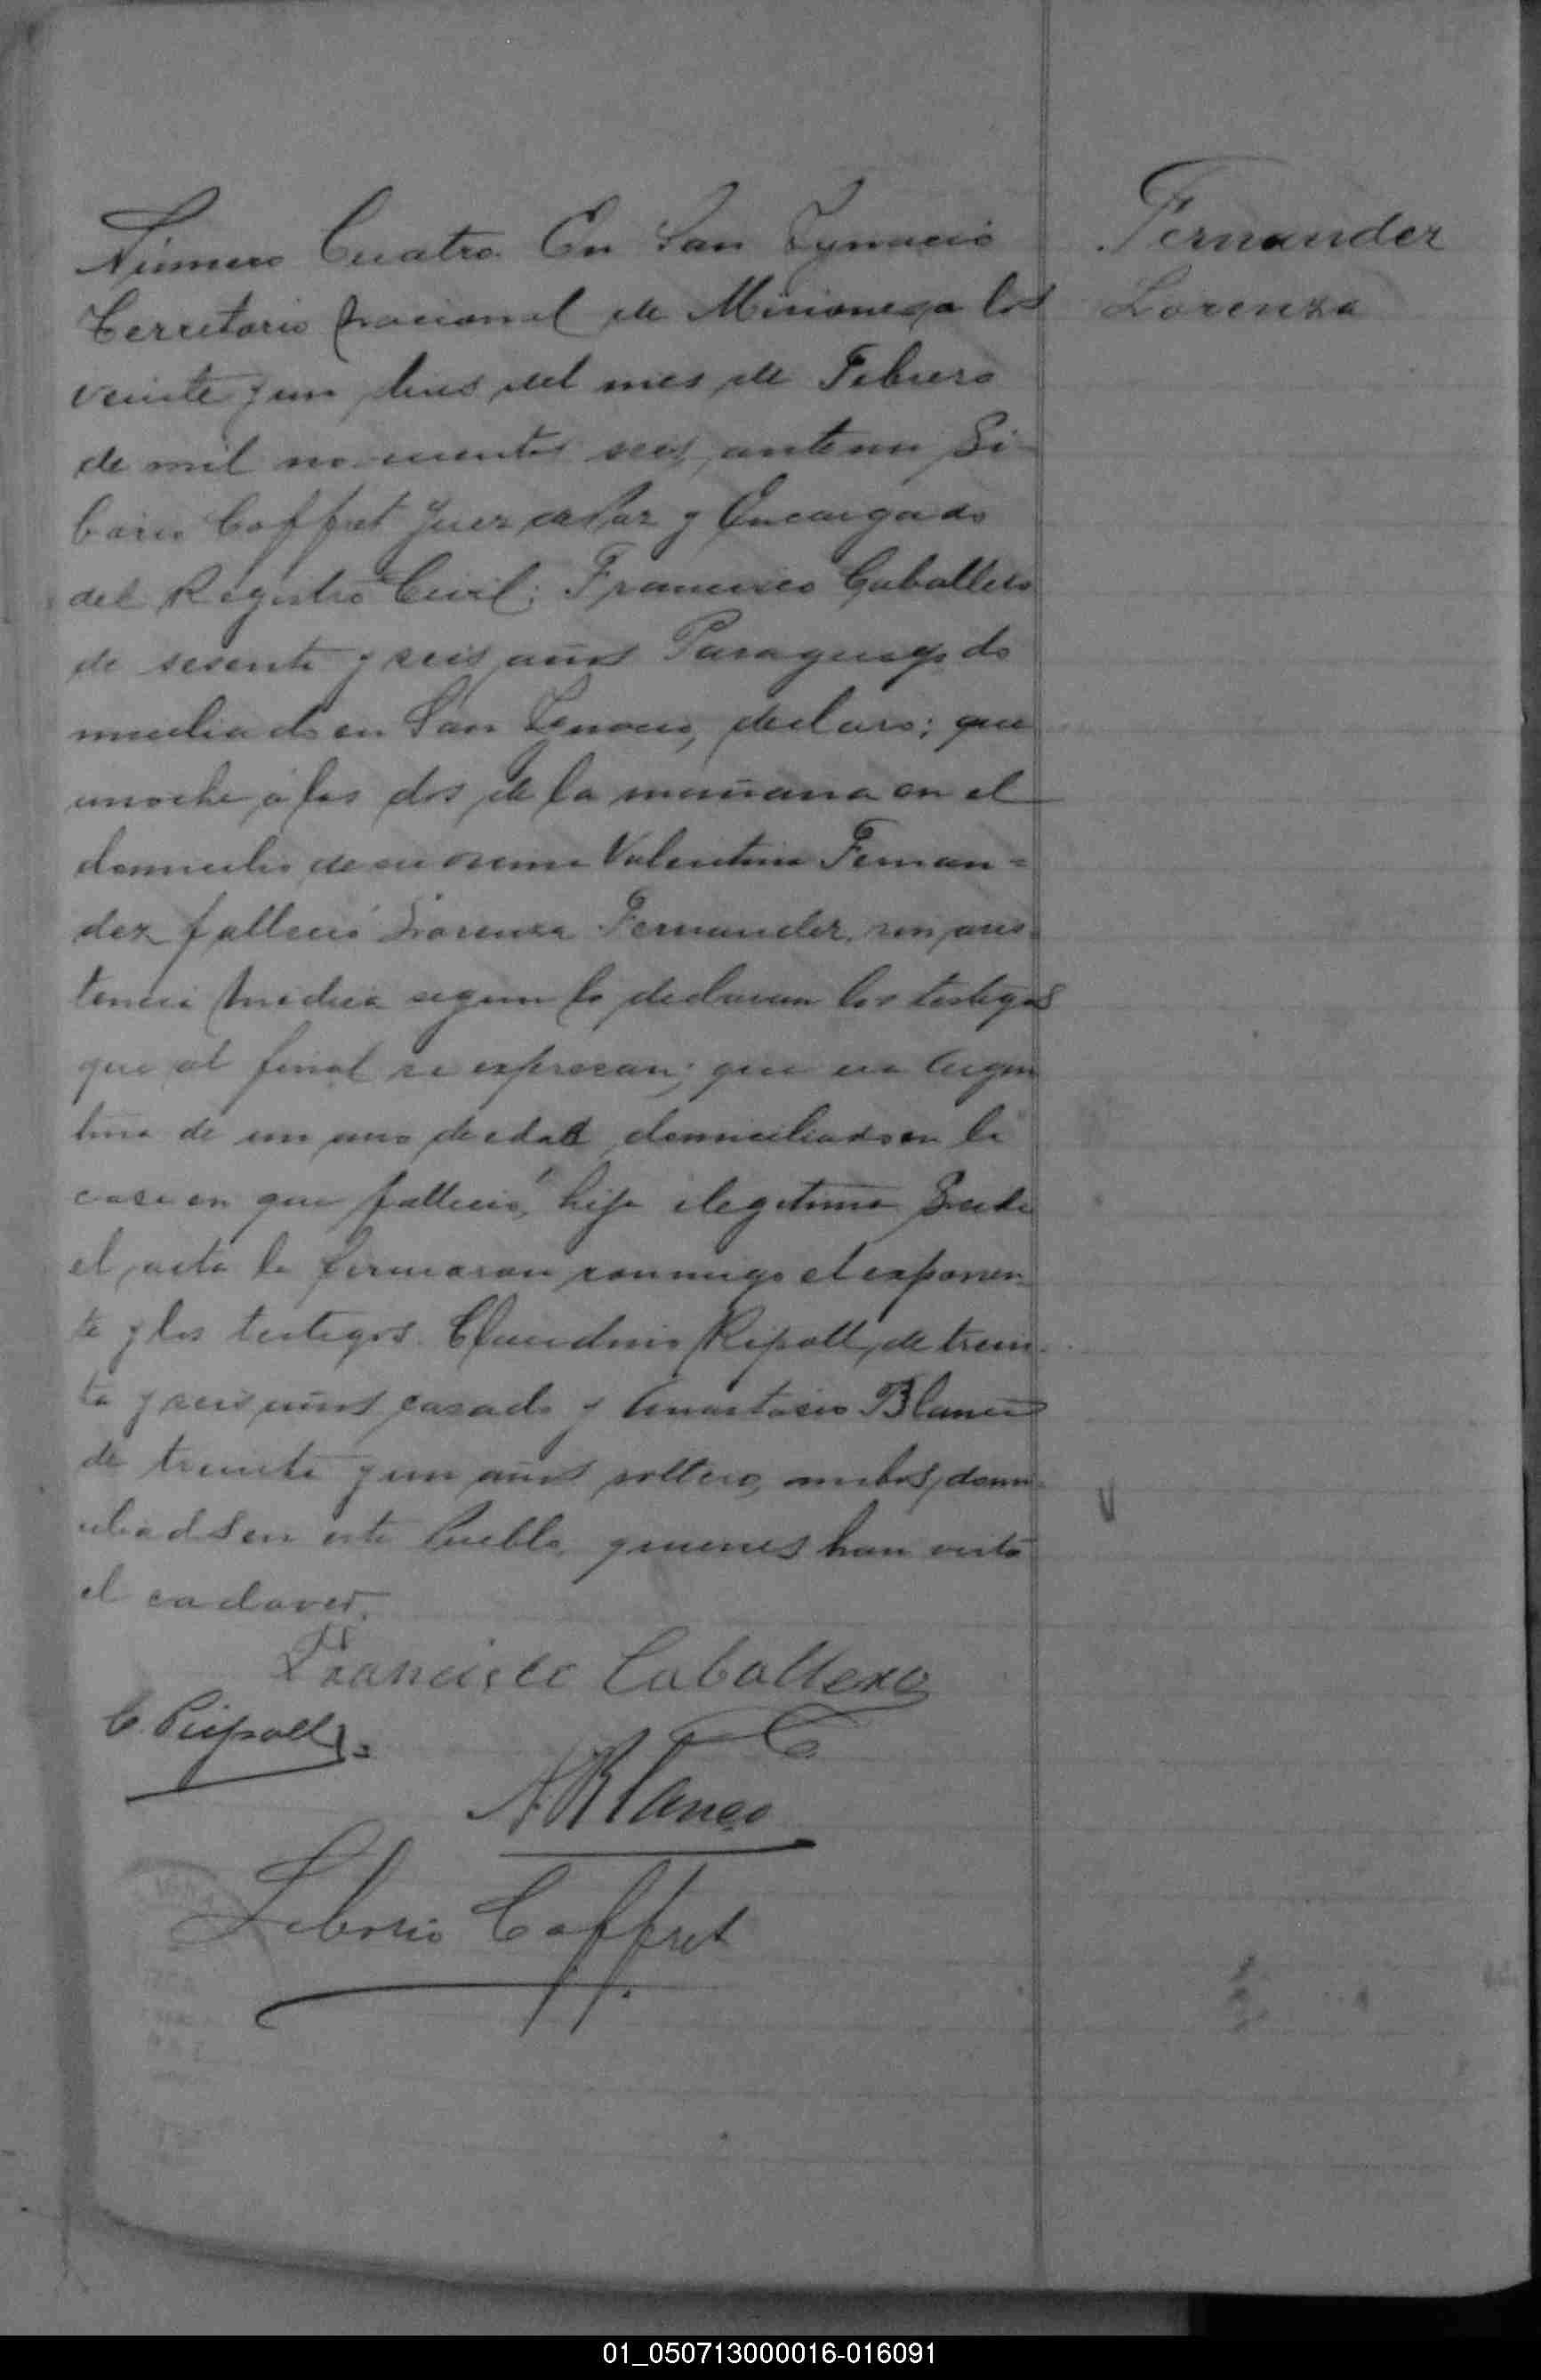 Fernandez
Lorenza
Número Cuatro. En San Ygnacio
Territorio nacional de Misiones, a los
veinte y un dias del mes de Febrero
de mil novecientos seis, ante mi Li-
borio Coffret Juez de Paz y Encargado
del Registro Civil; Francisco Caballero
de sesenta y seis años Paraguayo do
miciliado en San Ygnacio, declaro; que
anoche á las dos de la mañana en el
domicilio de su Valentina Fernan=
dez falleció Lorenza Fernandez, sin asis-
tencia medica segun lo declaran los testigos
que al final se expresan; que era Argen
tina de un año de edad domiciliada en la
casa en que falleció, hija ilegitima
el acta la firmaron conmigo el exponen-
te y los testigos Claudino Ripoll, de trein-
ta y seis años casado y Anastacio Blanco
de treinta y un años soltero, ambos domi-
ciliados en este Pueblo, quienes han visto
el cadaver.
Francisco Caballero
C. Ripoll
A. Blanco
Liborio Coffret
01_050713000016-016091